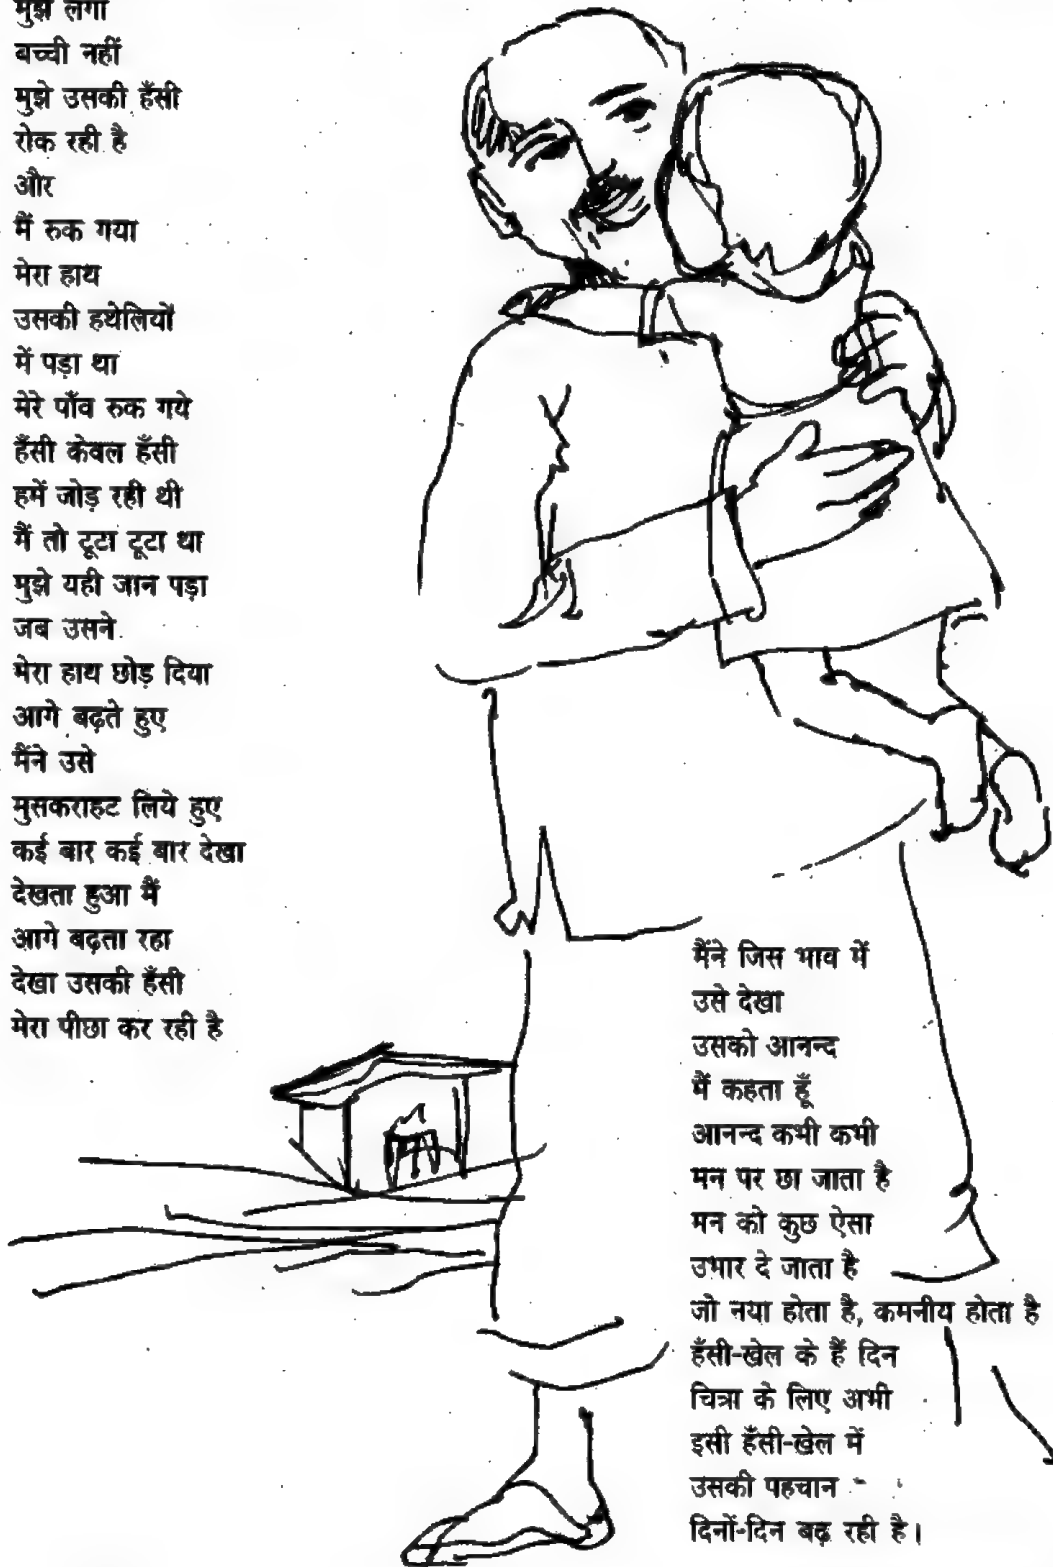 मुझे लगा
बच्ची नहीं
मुझे उसकी हँसी
रोक रही है
और
मैं रुक गया
मेरा हाथ
उसकी हथेलियों
में पड़ा था
मेरे पाँव रुक गये
हँसी केवल हँसी
हमें जोड़ रही थी
मैं तो टूटा टूटा था
मुझे यही जान पड़ा
जब उसने
मेरा हाथ छोड़ दिया
आगे बढ़ते हुए
मैंने उसे
मुसकराहट लिये हुए
कई बार कई बार देखा
देखता हुआ मैं
आगे बढ़ता रहा
देखा उसकी हँसी
मेरा पीछा कर रही है
मैंने जिस भाव में
उसे देखा
उसको आनन्द
मैं कहता हूँ
आनन्द कभी कभी
मन पर छा जाता है
मन को कुछ ऐसा
उभार दे जाता है
जो नया होता है, कमनीय होता है
हँसी-खेल के हैं दिन
चित्रा के लिए अभी
इसी हँसी-खेल में
उसकी पहचान
दिनों-दिन बढ़ रही है।